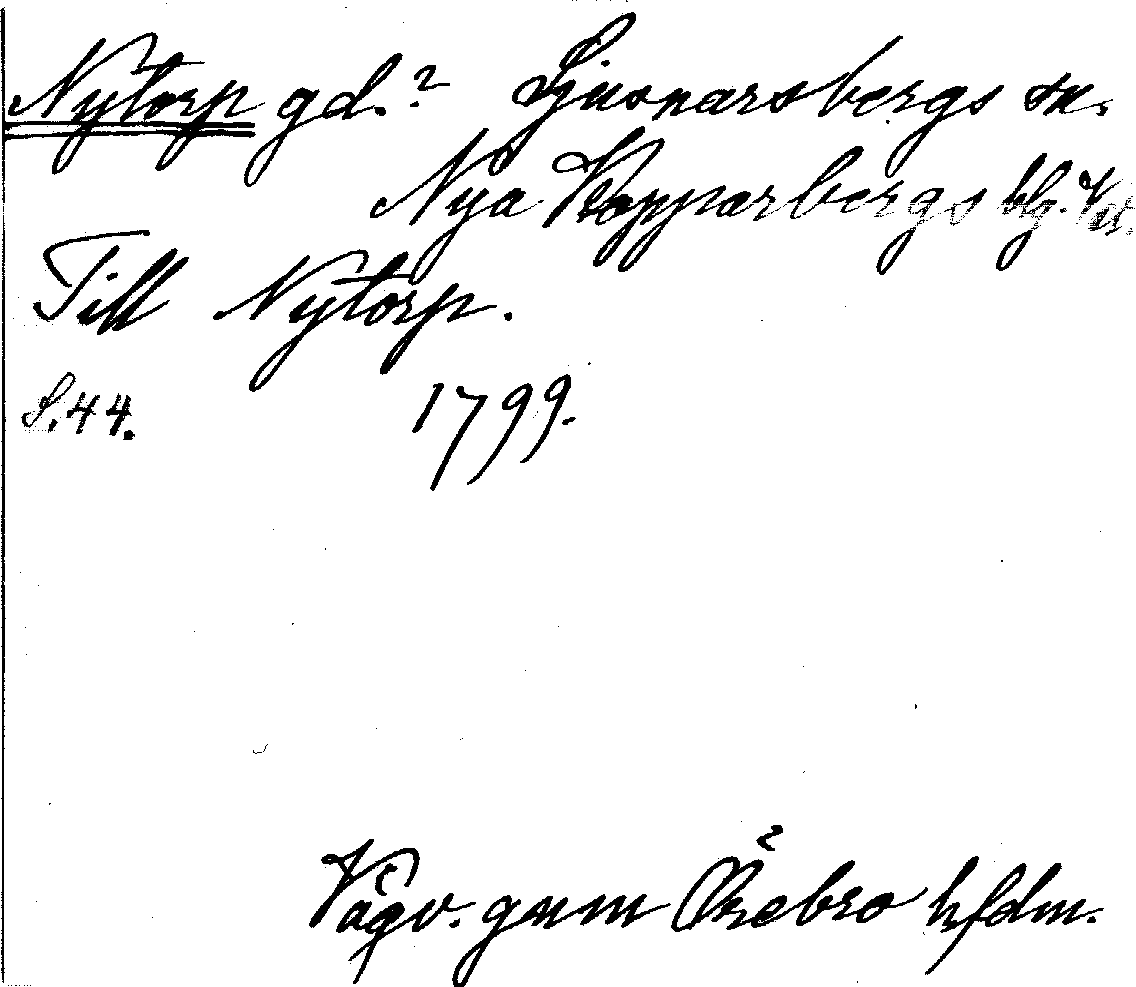 Nytorp gd.? Ljusnarsbergs sn.
Nya Kopparbergs blg.
Till Nytorp.
S. 44. 1799.
Vägv. gnm Örebro hfdm.